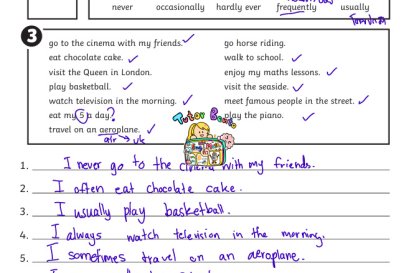 never occasionally hardly ever frequently usually
3
go to the cinema with my friends. go horse riding.
eat chocolate cake. walk to school.
visit the Queen in London. enjoy my maths lessons.
play basketball. visit the seaside.
watch television in the morning. meet famous people in the street.
eat my 5 a day? play the piano.
travel on an aeroplane.
air uk
Tutor
1. I never go to the cinema with my friends.
2. I often eat chocolate cake.
3. I usually play basketball.
4. I always watch television in the morning.
5. I sometimes travel on an aeroplane.